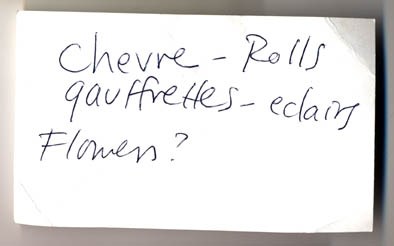 Chevre - Rolls
gauffrettes - eclairs
Flowers?